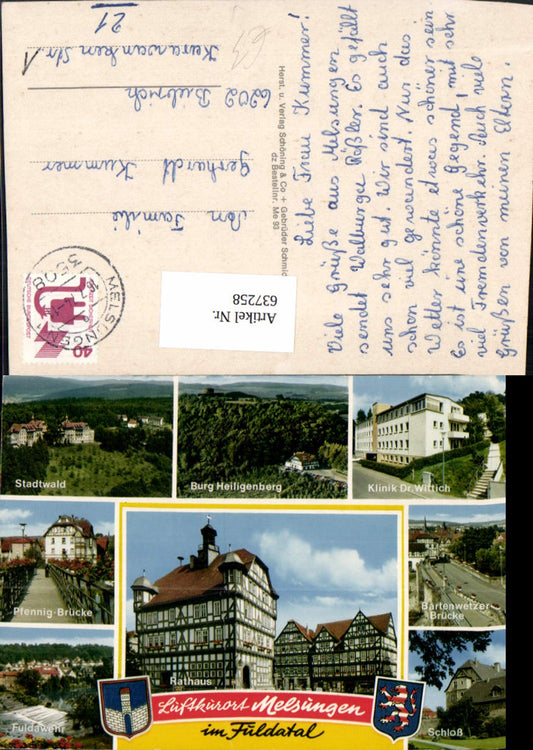 Liebe Frau Kummer!
Viele Grüße aus Melsungen
sendet Walburga Rößler. Es gefällt
uns sehr gut. Wir sind auch
schon viel gewandert. Nur das
Wetter könnte etwas schöner sein
Es ist eine schöne Gegend, mit sehr
viel Fremdenverkehr. Auch viele
Grüßen von meinen Eltern.
Herst. u. Verlag Schöning & Co + Gebrüder Schmidt
dz Bestellnr. Me 93
MELSUNGEN 1
3508
40
An Familie
Gerhardt Kummer
6202 Biebrich
Karawanken Str.
21
Artikel Nr.
637258
Stadtwald
Burg Heiligenberg
Klinik Dr. Wittich
Pfennig-Brücke
Rathaus
Bartenwetzer-
Brücke
Fuldawehr
Schloß
Luftkurort Melsungen
im Fuldatal